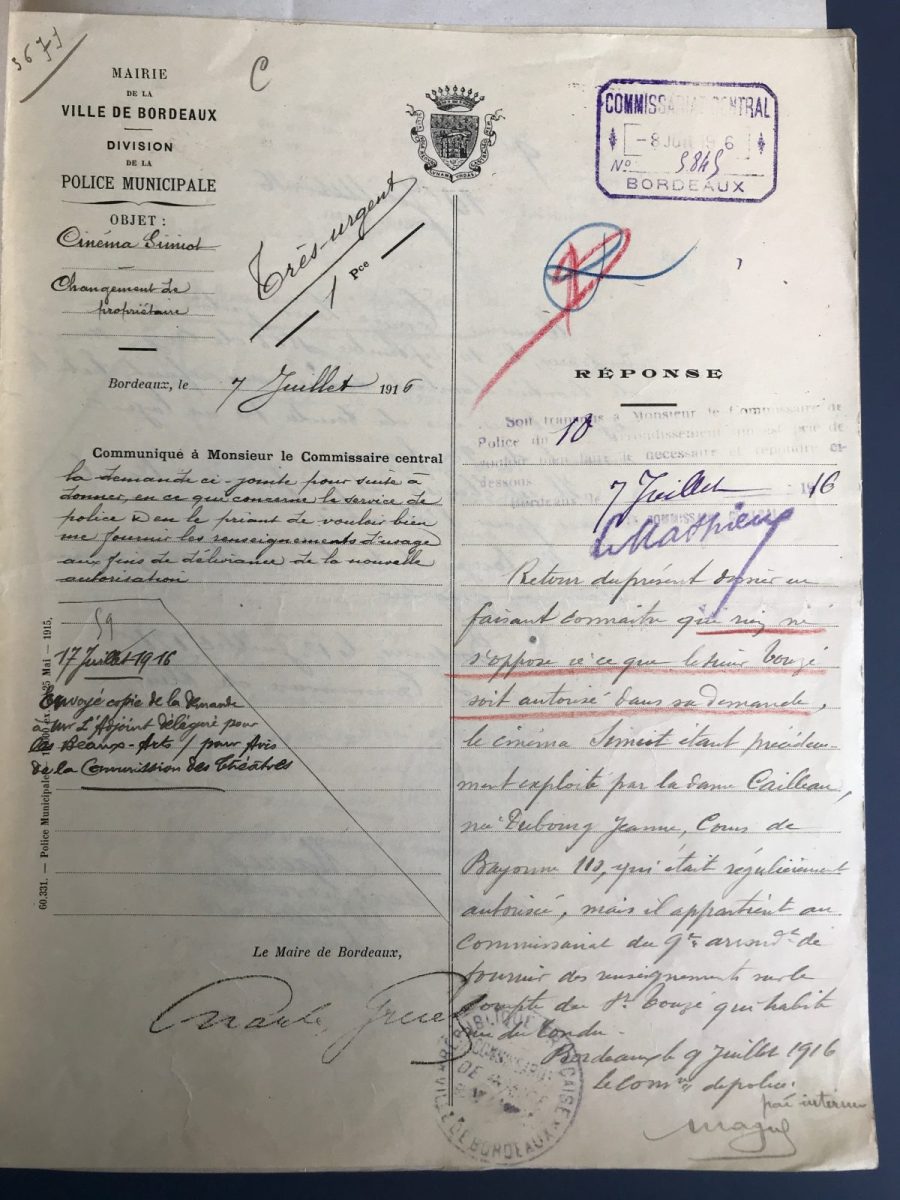 5671
C
MAIRIE
DE LA
VILLE DE BORDEAUX
DIVISION
DE LA
POLICE MUNICIPALE
OBJET :
Cinéma Simiot
Changement de
propriétaire
Très-urgent
1 Pce
Bordeaux, le 7 Juillet 1916
Communiqué à Monsieur le Commissaire central
la demande ci-jointe pour suite à
donner, en ce qui concerne le service de
police & en le priant de vouloir bien
me fournir les renseignements d'usage
aux fins de délivrance de la nouvelle
autorisation
59
17 Juillet 1916
Envoyé copie de la demande
à Mr L'Adjoint délégué pour
les Beaux-Arts / pour Avis
de la Commission des Théâtres
60.331. — Police Municipale — 25 Mai — 1915.
Le Maire de Bordeaux,
COMMISSARIAT CENTRAL
-8 JUI 1916
No 5845
BORDEAUX
RÉPONSE
Soit transmis à Monsieur le Commissaire de
Police du 10 arrondissement qui est prié de
vouloir bien faire le nécessaire et répondre ci-
dessous
Bordeaux le 7 Juillet 1916
Retour du présent dossier en
faisant connaître que rien ne
s'oppose à ce que le sieur Touzé
soit autorisé dans sa demande,
le cinéma Simiot étant précédem-
ment exploité par la dame Cailleau,
née Dubourg Jeanne, Cours de
Bayonne 110, qui était régulièrement
autorisée, mais il appartient au
Commissariat du 9e arrondt de
fournir des renseignements sur le
compte du Sr Touzé qui habite
rue du Tondu.
Bordeaux le 9 Juillet 1916
le Comre de police
par interim
RÉPUBLIQUE FRANÇAISE
COMMISSARIAT
DE POLICE
VILLE DE BORDEAUX